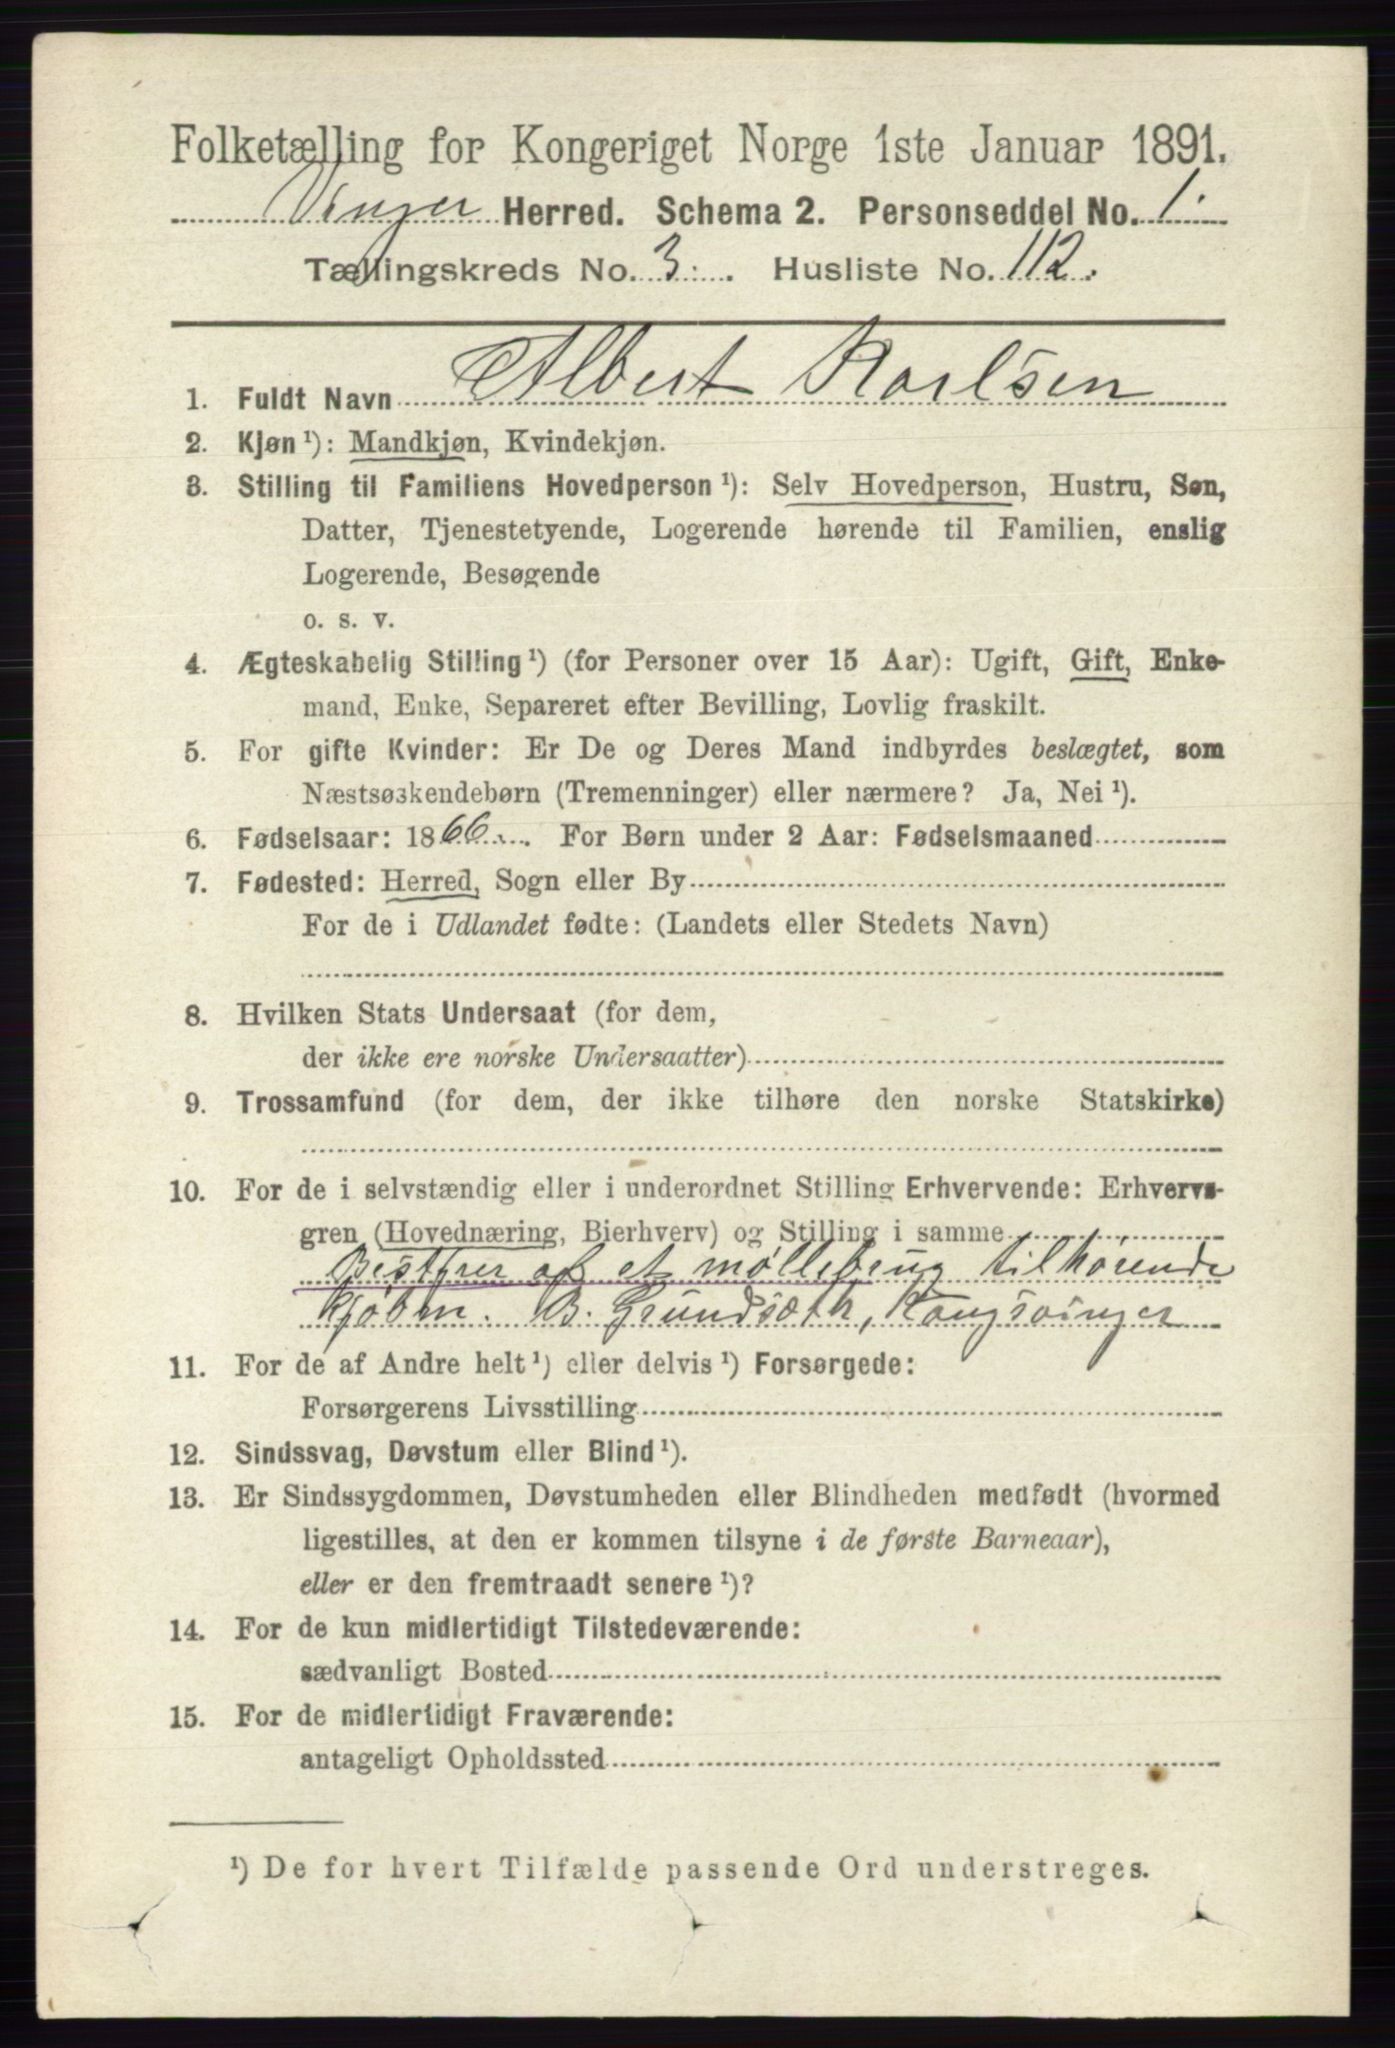 Folketælling for Kongeriget Norge 1ste Januar 1891.
Vinger Herred. Schema 2. Personseddel No. 1.
Tællingskreds No. 3. Husliste No. 112.
1. Fuldt Navn Albert Karlsen
2. Kjøn ¹): Mandkjøn, Kvindekjøn.
3. Stilling til Familiens Hovedperson ¹): Selv Hovedperson, Hustru, Søn,
Datter, Tjenestetyende, Logerende hørende til Familien, enslig
Logerende, Besøgende
o. s. v.
4. Ægteskabelig Stilling ¹) (for Personer over 15 Aar): Ugift, Gift, Enke-
mand, Enke, Separeret efter Bevilling, Lovlig fraskilt.
5. For gifte Kvinder: Er De og Deres Mand indbyrdes beslægtet, som
Næstsøskendebørn (Tremenninger) eller nærmere? Ja, Nei ¹).
6. Fødselsaar: 1866. For Børn under 2 Aar: Fødselsmaaned
7. Fødested: Herred, Sogn eller By
For de i Udlandet fødte: (Landets eller Stedets Navn)
8. Hvilken Stats Undersaat (for dem,
der ikke ere norske Undersaatter)
9. Trossamfund (for dem, der ikke tilhøre den norske Statskirke)
10. For de i selvstændig eller i underordnet Stilling Erhvervende: Erhvervs-
gren (Hovednæring, Bierhverv) og Stilling i samme
Bestyrer af et møllebrug tilhørende
Kjøbm. B. Grundsæth, Kongsvinger
11. For de af Andre helt ¹) eller delvis ¹) Forsørgede:
Forsørgerens Livsstilling
12. Sindssvag, Døvstum eller Blind ¹).
13. Er Sindssygdommen, Døvstumheden eller Blindheden medfødt (hvormed
ligestilles, at den er kommen tilsyne i de første Barneaar),
eller er den fremtraadt senere ¹)?
14. For de kun midlertidigt Tilstedeværende:
sædvanligt Bosted
15. For de midlertidigt Fraværende:
antageligt Opholdssted
¹) De for hvert Tilfælde passende Ord understreges.